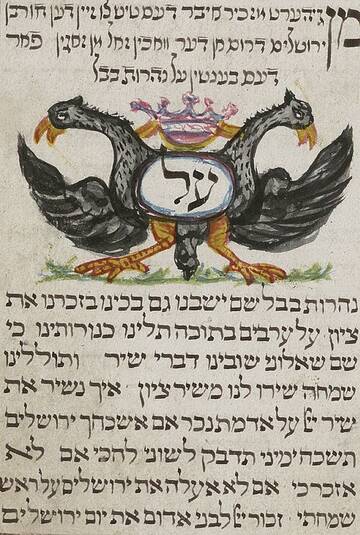 מן גיהערט מזכיר דעם טיש צו זיין דען חורבן
ירושלים דרום מן דער וואכין זאל מן זאגין
דעם על נהרות בבל
על
נהרות בבל שם ישבנו גם בכינו בזכרנו את
ציון על ערבים בתוכה תלינו כנורותינו כי
שם שאלוני שובינו דברי שיר ותוללינו
שמחה שירו לנו משיר ציון איך נשיר את
שיר יי על אדמת נכר אם אשכחך ירושלים
תשכח ימיני תדבק לשוני לחכי אם לא
אזכרכי אם לא אעלה את ירושלים על ראש
שמחתי זכור יי לבני אדום את יום ירושלים